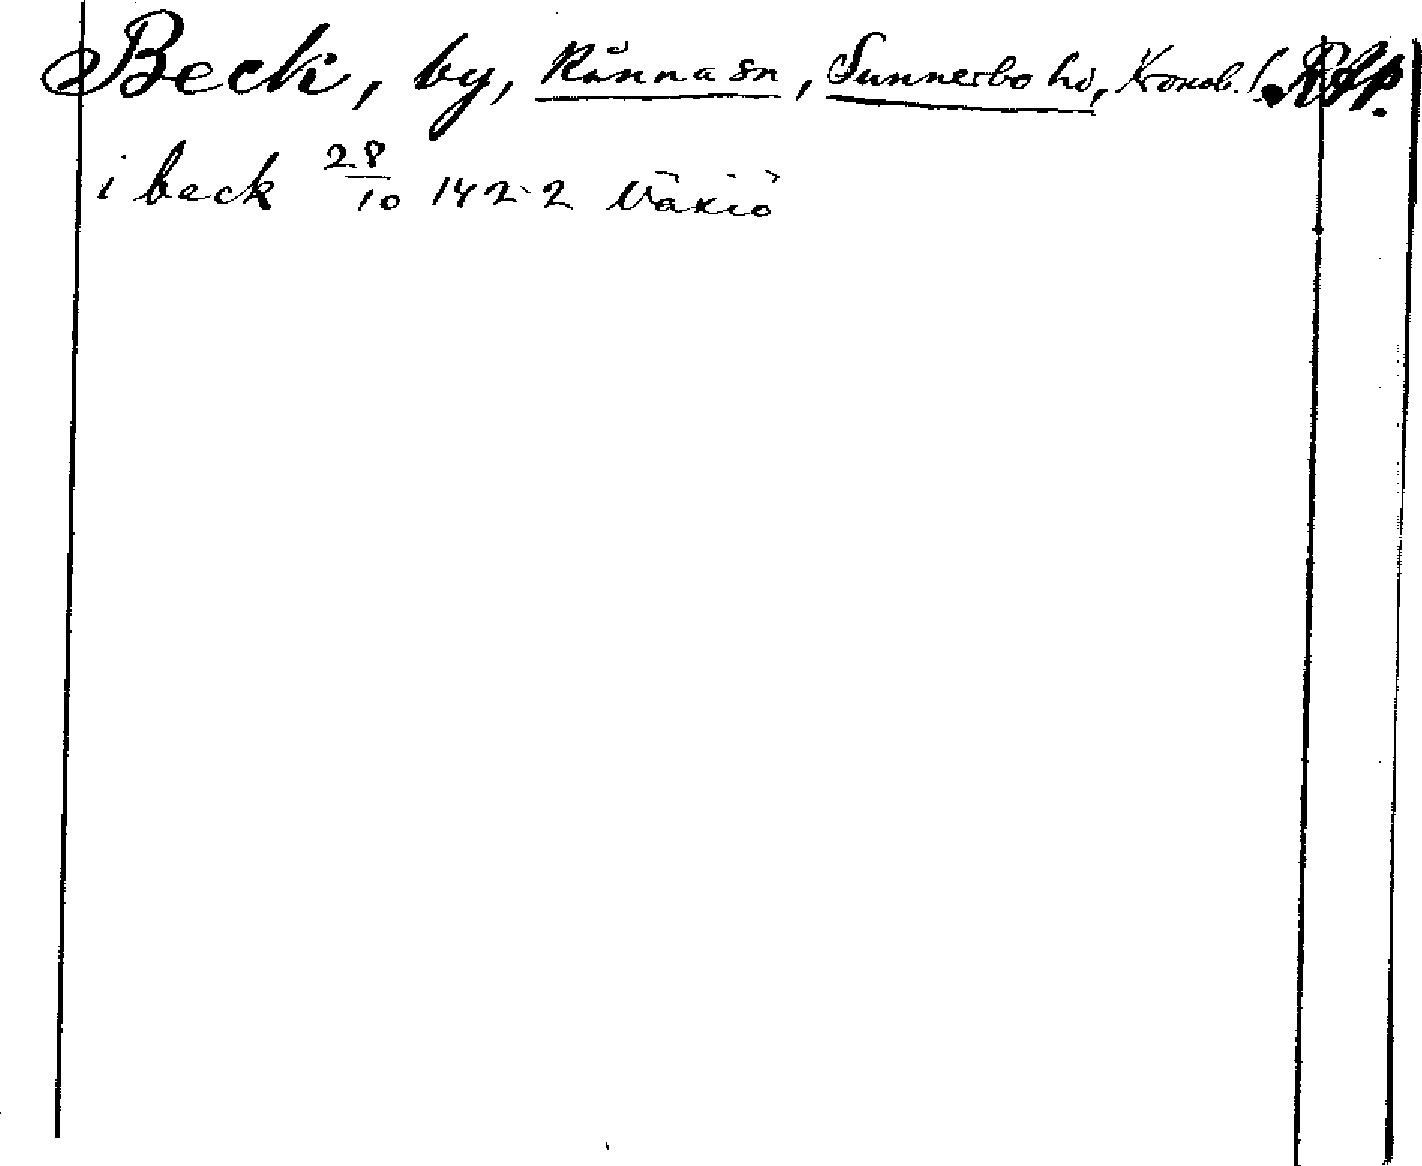 Beck, by, Rånna sn, Sunnerbo hd, Kronob. l. RAp.
i beck 28/10 1422 Växiö